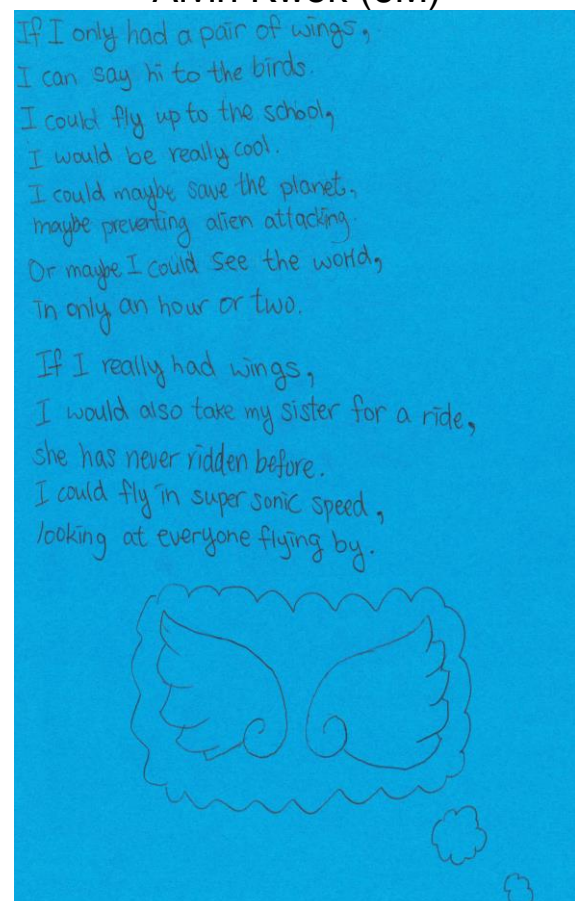 If I only had a pair of wings,
I can say hi to the birds.
I could fly up to the school,
I would be really cool.
I could maybe save the planet,
maybe preventing alien attacking.
Or maybe I could see the world,
In only an hour or two.
If I really had wings,
I would also take my sister for a ride,
she has never ridden before.
I could fly in super sonic speed,
looking at everyone flying by.